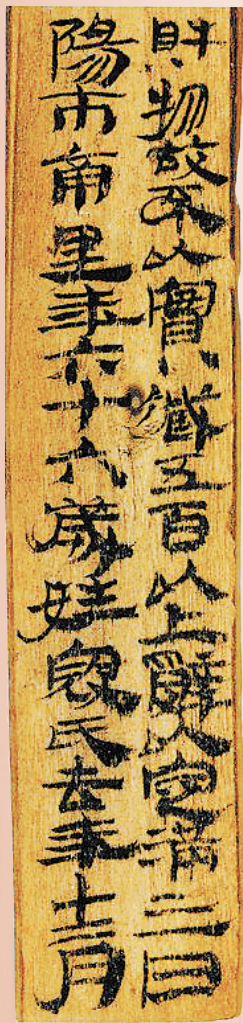 財物故不以實臧五百以上辭以定滿三日
陽市南里年六十六歲姓寇氏去年十二月